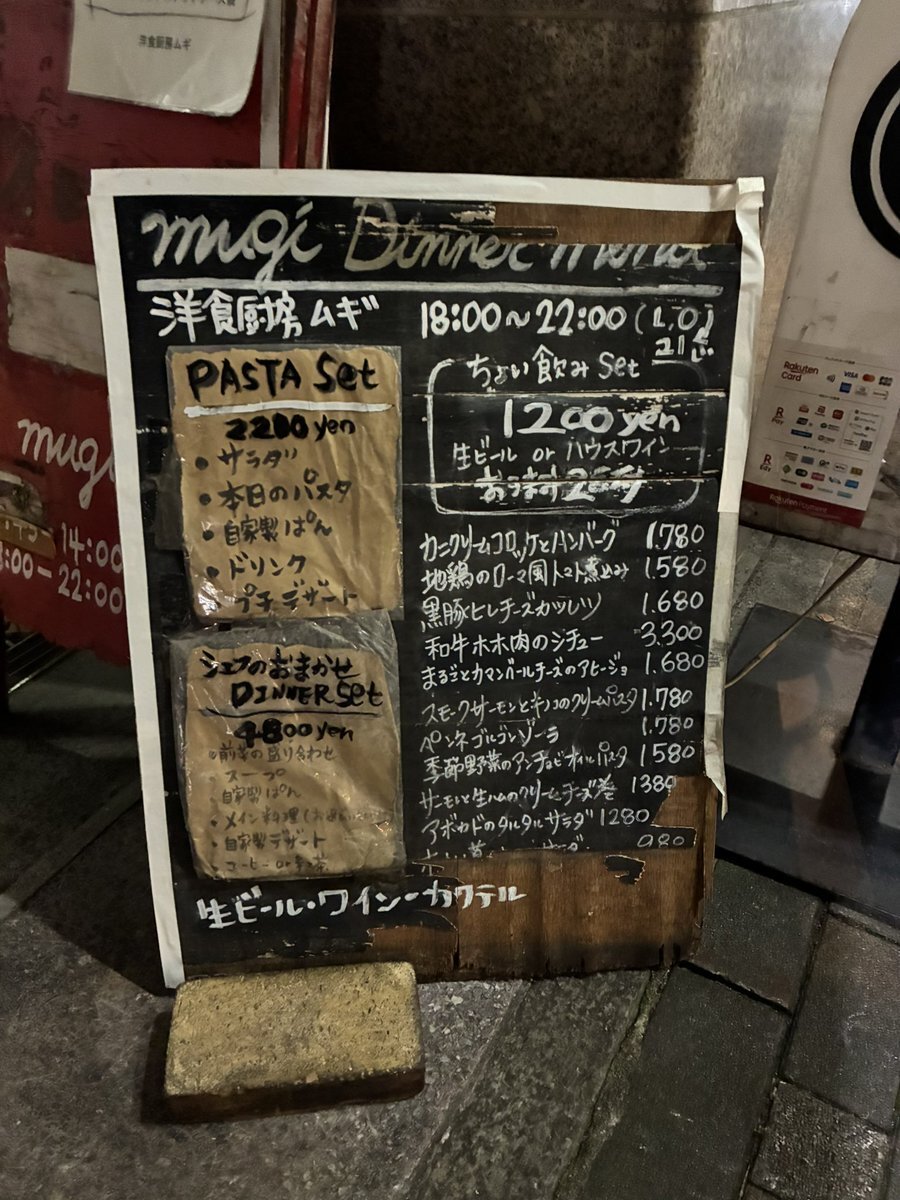 洋食厨房ムギ
mugi Dinner menu
洋食厨房 ムギ
18:00～22:00 (L.O)
PASTA Set
2200 yen
• サラダ
• 本日のパスタ
• 自家製ぱん
• ドリンク
• プチデザート
シェフのおまかせ
DINNER Set
4800 yen
• 前菜の盛り合わせ
• スープ
• 自家製ぱん
• メイン料理
• 自家製デザート
• コーヒー or 紅茶
ちょい飲み Set
1200 yen
生ビール or ハウスワイン
おつまみ
カニクリームコロッケとハンバーグ 1.780
地鶏のローマ風トマト煮込み 1.580
黒豚ヒレチーズカツレツ 1.680
和牛ホホ肉のシチュー 3.300
まるごとカマンベールチーズのアヒージョ 1.680
スモークサーモンとキノコのクリームパスタ 1.780
ペンネゴルゴンゾーラ 1.780
季節野菜のアンチョビオイルパスタ 1580
サーモンと生ハムのクリームチーズ巻 1380
アボカドのタルタルサラダ 1280
980
生ビール・ワイン・カクテル
mugi
14:00
22:00
Rakuten Card
VISA
R Pay
R Edy
Rakuten Payment